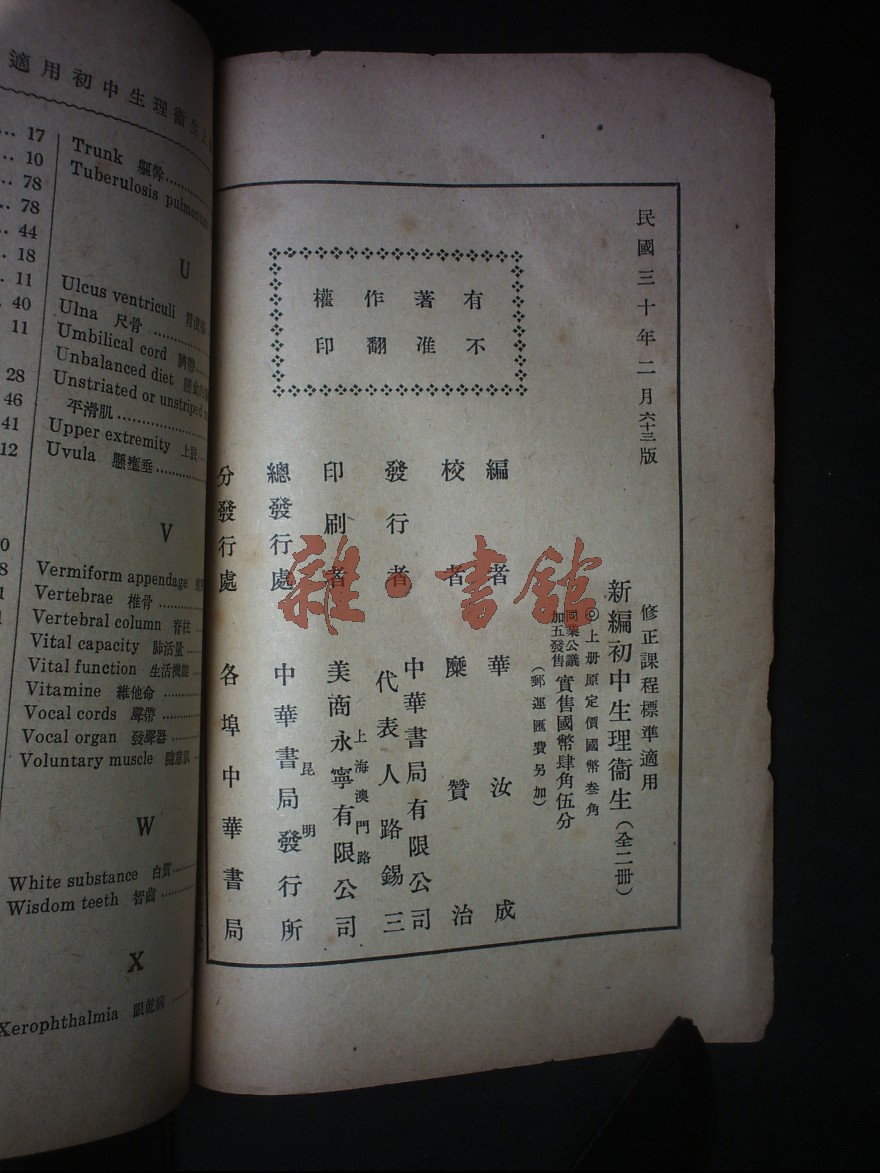 適用初中生理衞生上
17
10
78
78
44
18
11
40
11
28
46
41
12
Trunk 軀幹
Tuberulosis
U
Ulcus ventriculi 胃潰瘍
Ulna 尺骨
Umbilical cord 臍帶
Unbalanced diet
Unstriated or unstriped
平滑肌
Upper extremity 上肢
Uvula 懸壅垂
V
Vermiform appendage
Vertebrae 椎骨
Vertebral column 脊柱
Vital capacity 肺活量
Vital function 生活機能
Vitamine 維他命
Vocal cords 聲帶
Vocal organ 發聲器
Voluntary muscle 隨意肌
W
White substance 白質
Wisdom teeth 智齒
X
Xerophthalmia 眼乾病
民國三十年二月六十三版
有不
著准
作翻
權印
修正課程標準適用
新編初中生理衞生(全二冊)
◎上册原定價國幣叁角
同業公議加五發售實售國幣肆角伍分
(郵運匯費另加)
編者 華汝成
校者 糜贊治
發行者 中華書局有限公司
代表人路錫三
上海澳門路
印刷者 美商永寧有限公司
昆明
總發行處 中華書局發行所
分發行處 各埠中華書局
雜·書館